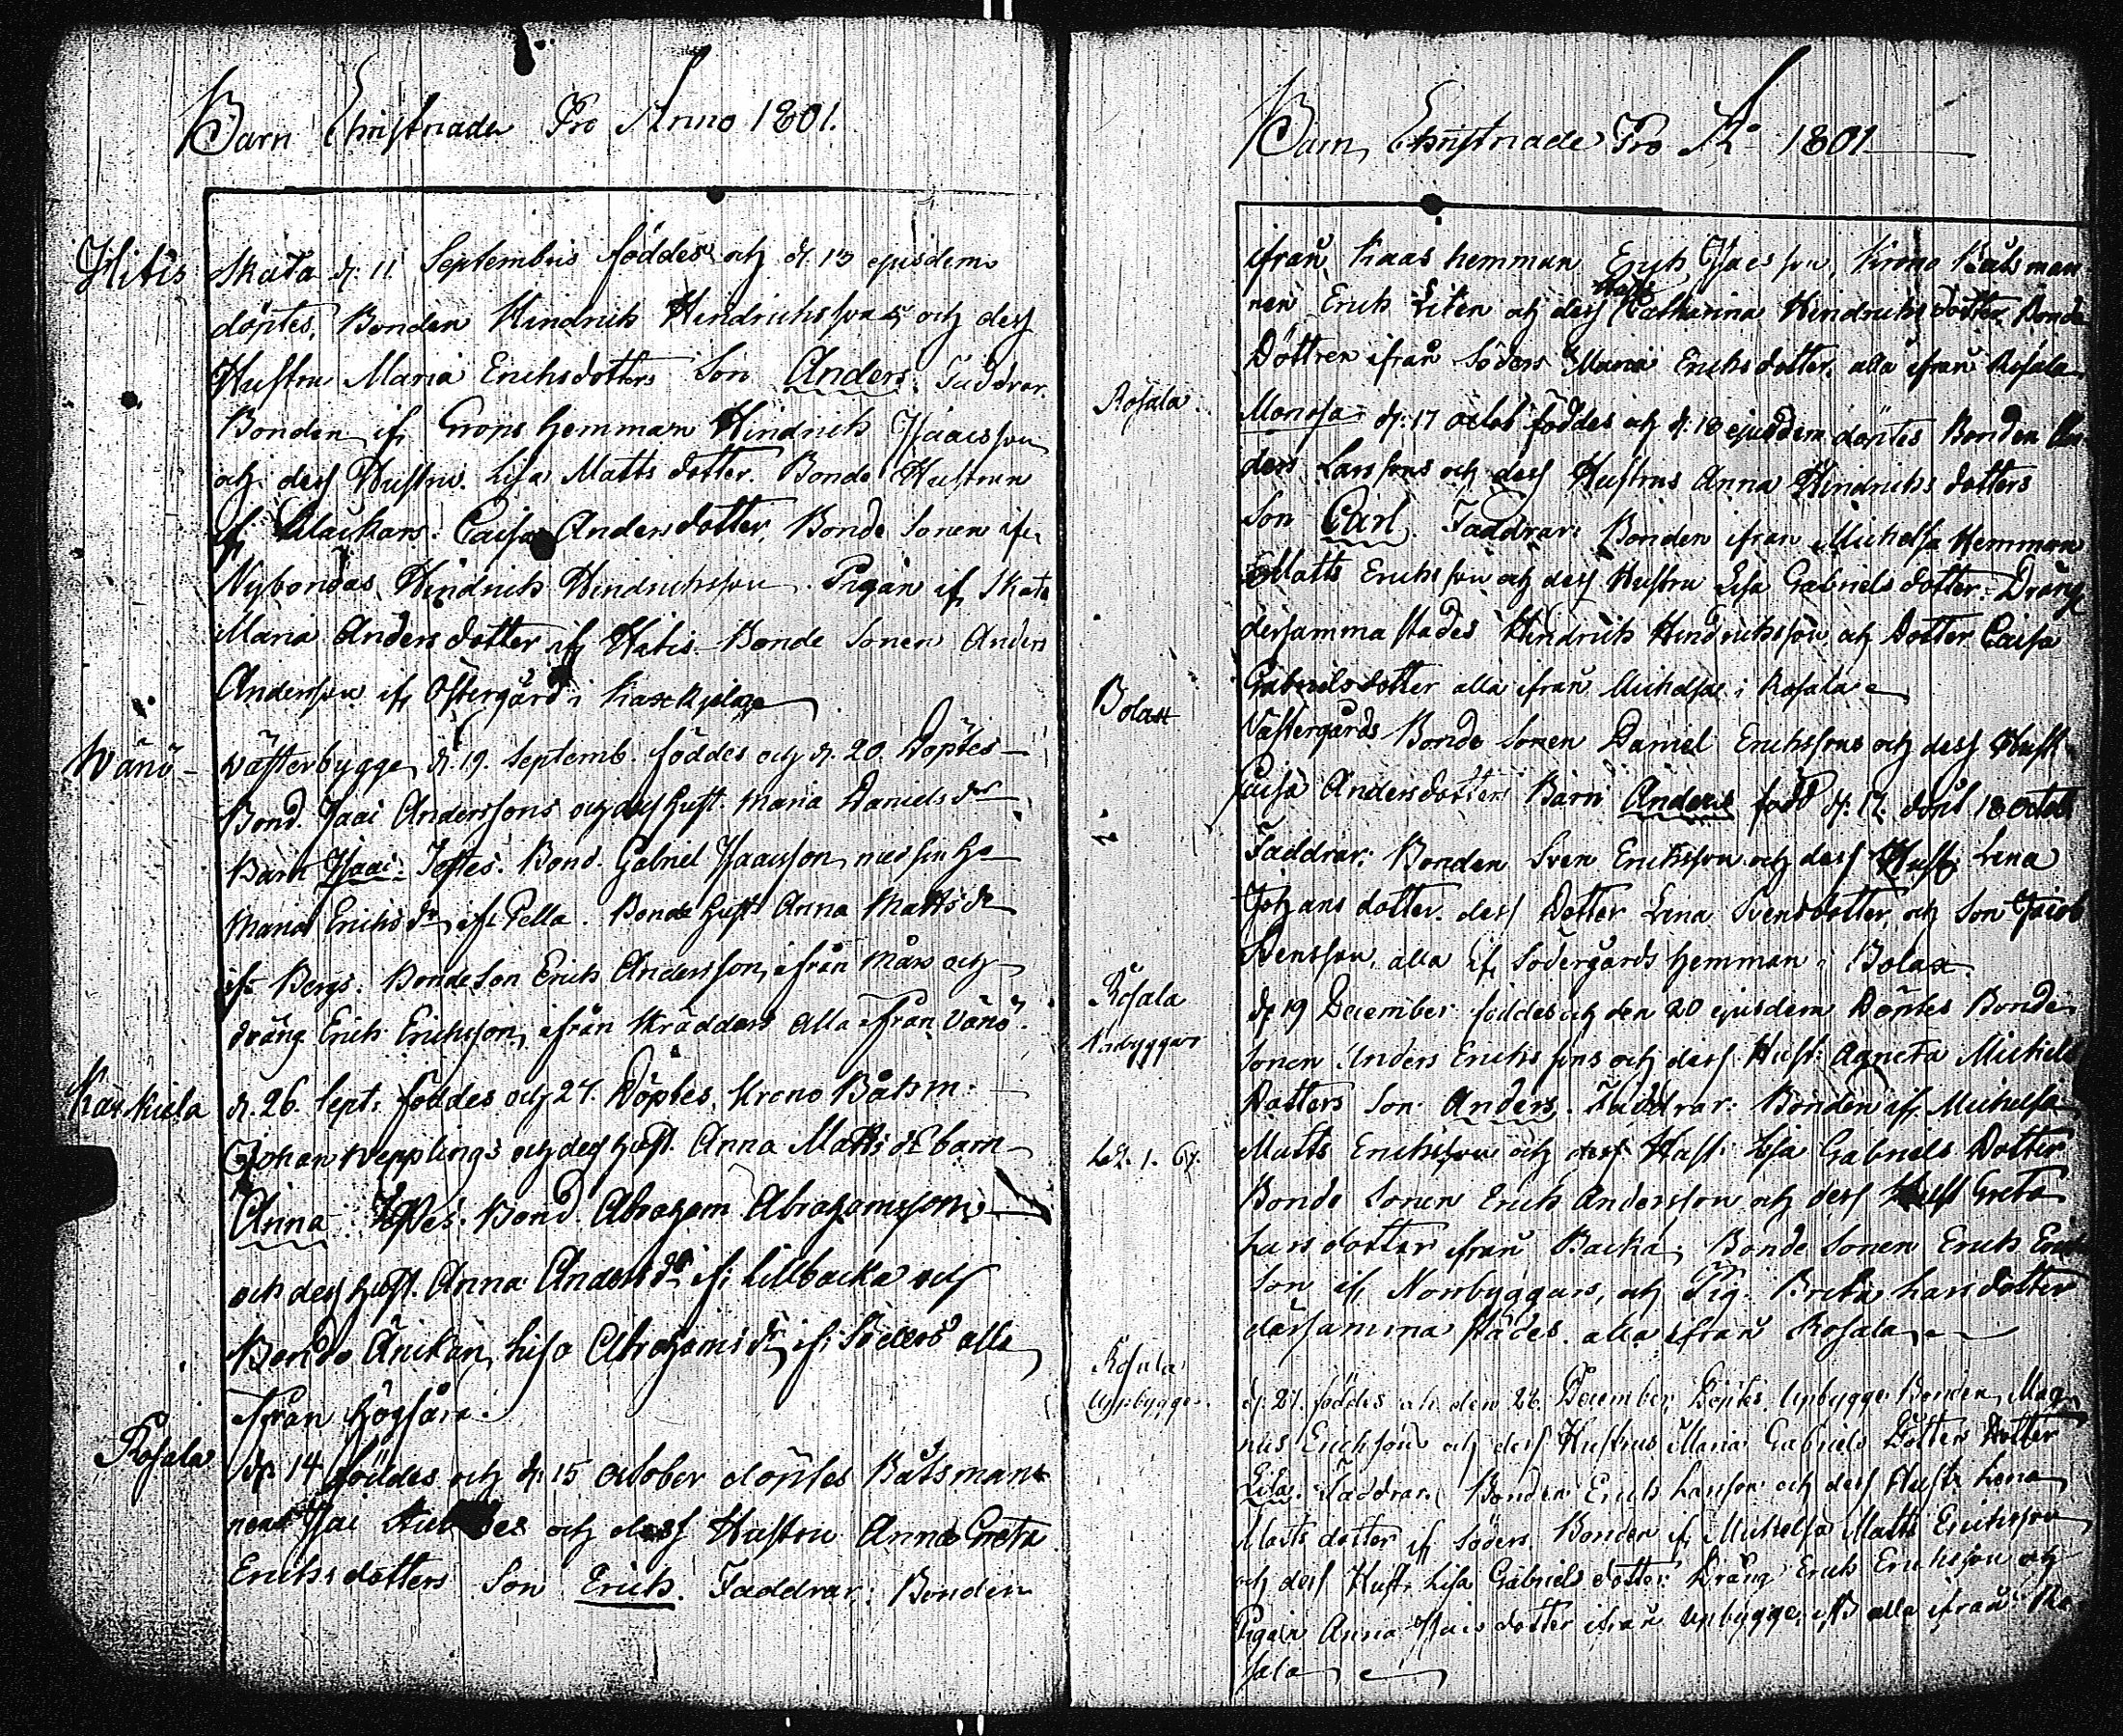 Barn Christnade Pro Anno 1801.
Hitis
Skata d: 11 Septembris föddes och d. 13 ejusdem
döptes, Bonden Hindrich Hindrichssons och dess
Hustru Maria Erichsdotters Son Anders. Faddrar.
Bonden if: Grops hemman Hindrich Isaacsson
och dess Hustru. Lisa Matts dotter. Bonde Hustrun
if Klackars. Caisa Andersdotter, Bonde Sonen ifr
Nybondas Hindrich Hindrichsson. Pigan if, Skata
Maria Anders dotter if Hitis. Bonde Sonen Anders
Andersson if, Östergård i
Wänö
wästerbygge, d. 19. Septemb. föddes och d. 20. Döptes
Bond. Isaac Anderssons och dess hust. Maria Daniels dr
Barn Isaac. Testes. Bond. Gabriel Isaacsson med sin h
Maria Erichs dr if: Pella. Bonde hust Anna Matts dr
if: Bergs. Bonde Son Erich Andersson, ifrån Mårs och
dräng Erich Erichsson, ifrån Skräddars alla ifrån Vänö.
d. 26. Sept: föddes och 27. Döptes, Krono Båtsm:
Johan Wepplings och dess hust. Anna Matts dr barn
Anna. Testes. Bond. Abraham Abrahamsson
och dess hust. Anna Anders dr if: Lillbacka och
Bonde Änckan, Lisa Abrahams dr if: Söders alla
ifrån Högsåra.
Rosala
d: 14 föddes och d: 15 October döptes Båtsman
nens Isac och dess Hustru Anna Greta
Erichsdotters Son Erich. Faddrar: Bonden
Barn Christnade Pro Ao 1801
ifrån Kaas hemman Erich Isacsson, Krono Båtsman
nen Erich Liten och dess Hust Catharina Hindrichsdotter Bonde
Döttren ifrån Söders Maria Erichsdotter, alla ifrån Rosala
Rosala.
d: 17 octob föddes och d: 18 ejusdem döptes Bonden An
ders Larssons och dess Hustrus Anna Hindrichs dotters
Son Carl. Faddrar: Bonden ifrån Michelsa Hemman
Matts Erichsson och dess Hustru Lisa Gabriels dotter. Dräng
dersamma stades Hindrich Hindrichsson, och Dotter Caisa
Gabrielsdotter alla ifrån Michelsa i Rosala
Bolax
Västergårds Bonde Sonen Daniel Erichssons och dess Hust
Caisa Andersdotters Barn Anders född d: 17. döpt 18 Octob
Faddrar: Bonden Sven Erichsson och dess Hust Lena
Johans dotter. dess Dotter Lena Svensdotter, och Son Jacob
Svensson, alla if, Södergårds hemman i Bolax.
Rosala
Norrbyggars
d: 19 December föddes och den 20 ejusdem Döptes Bonde
Sonen Anders Erichssons och dess Hust: Agneta Michels
Dotters Son Anders. Faddrar: Bonden if, Michelsa
Matts Erichsson och dess Hust: Lisa Gabriels Dotter
Bonde Sonen Erich Andersson och dess Hust Greta
Lars dotter ifrån Backa, Bonde Sonen Erich
Son if, Norrbyggars, och Pig: Brita Larsdotter
därsamma städes. alla ifrån Rosala
Rosala
Uppbygge.
d. 27. föddes och den 28. December Döptes Upbygge Bonden, Mag
nus Erichsons och dess Hustrus Maria Gabriels Dotters Dotter
Lisa. Faddrar. Bonden Erich Larsson och dess Hust: Lena
Matts dotter if Söders. Bonden if, Michelsa Matts Erichsson
och dess Hust: Lisa Gabriels dotter. Dräng Erich Erichsson och
Pigan Anna Isacs dotter ifrån Upbygge, alla ifrån Ro
sala